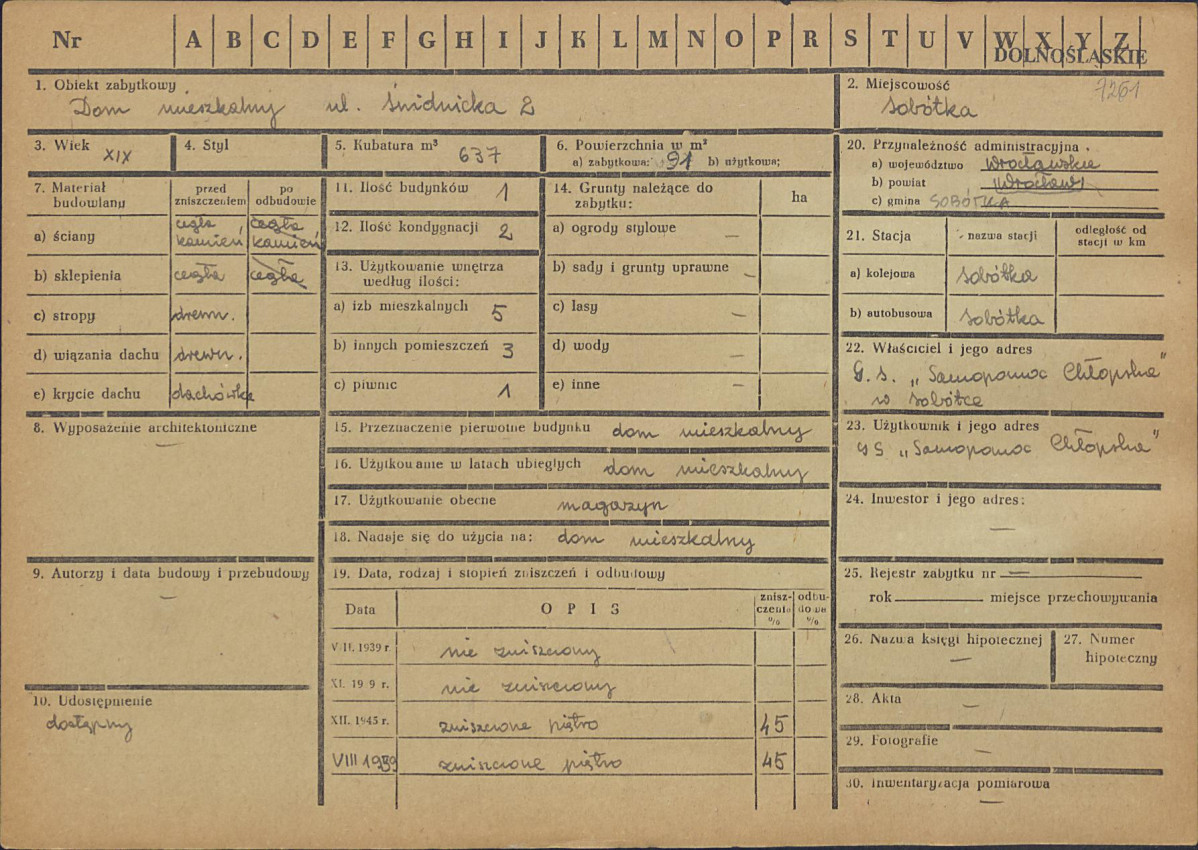 Nr A B C D E F G H I J K L M N O P R S T U V W X Y Z
DOLNOŚLĄSKIE
1. Obiekt zabytkowy
Dom mieszkalny ul. Świdnicka 2
2. Miejscowość
7261
Sobótka
3. Wiek XIX
4. Styl
5. Kubatura m³ 637
6. Powierzchnia w m²
a) zabytkowa: 91 b) użytkowa;
7. Materiał budowlany
przed zniszczeniem
po odbudowie
a) ściany cegła kamień cegła kamień
b) sklepienia cegła cegła
c) stropy drewn.
d) wiązania dachu drewn.
e) krycie dachu dachówka
8. Wyposażenie architektoniczne
—
9. Autorzy i data budowy i przebudowy
—
10. Udostępnienie
dostępny
11. Ilość budynków 1
12. Ilość kondygnacji 2
13. Użytkowanie wnętrza
według ilości:
a) izb mieszkalnych 5
b) innych pomieszczeń 3
c) piwnic 1
14. Grunty należące do
zabytku:
ha
a) ogrody stylowe —
b) sady i grunty uprawne —
c) lasy —
d) wody —
e) inne —
15. Przeznaczenie pierwotne budynku dom mieszkalny
16. Użytkowanie w latach ubiegłych dom mieszkalny
17. Użytkowanie obecne magazyn
18. Nadaje się do użycia na: dom mieszkalny
19. Data, rodzaj i stopień zniszczeń i odbudowy
Data
OPIS
znisz-
czenie
%
odbu-
dowa
%
VIII. 1939 r. nie zniszczony
XI. 19 9 r. nie zniszczony
XII. 1945 r. zniszczone piętro 45
VIII 1959 zniszczone piętro 45
20. Przynależność administracyjna
a) województwo wrocławskie
b) powiat Wrocław
c) gmina SOBÓTKA
21. Stacja
nazwa stacji
odległość od
stacji w km
a) kolejowa Sobótka
b) autobusowa Sobótka
22. Właściciel i jego adres
G. S. „Samopomoc Chłopska"
w Sobótce
23. Użytkownik i jego adres
GS „Samopomoc Chłopska"
24. Inwestor i jego adres:
—
25. Rejestr zabytku nr —
rok miejsce przechowywania
26. Nazwa księgi hipotecznej
—
27. Numer
hipoteczny
28. Akta
—
29. Fotografie
—
30. Inwentaryzacja pomiarowa
—